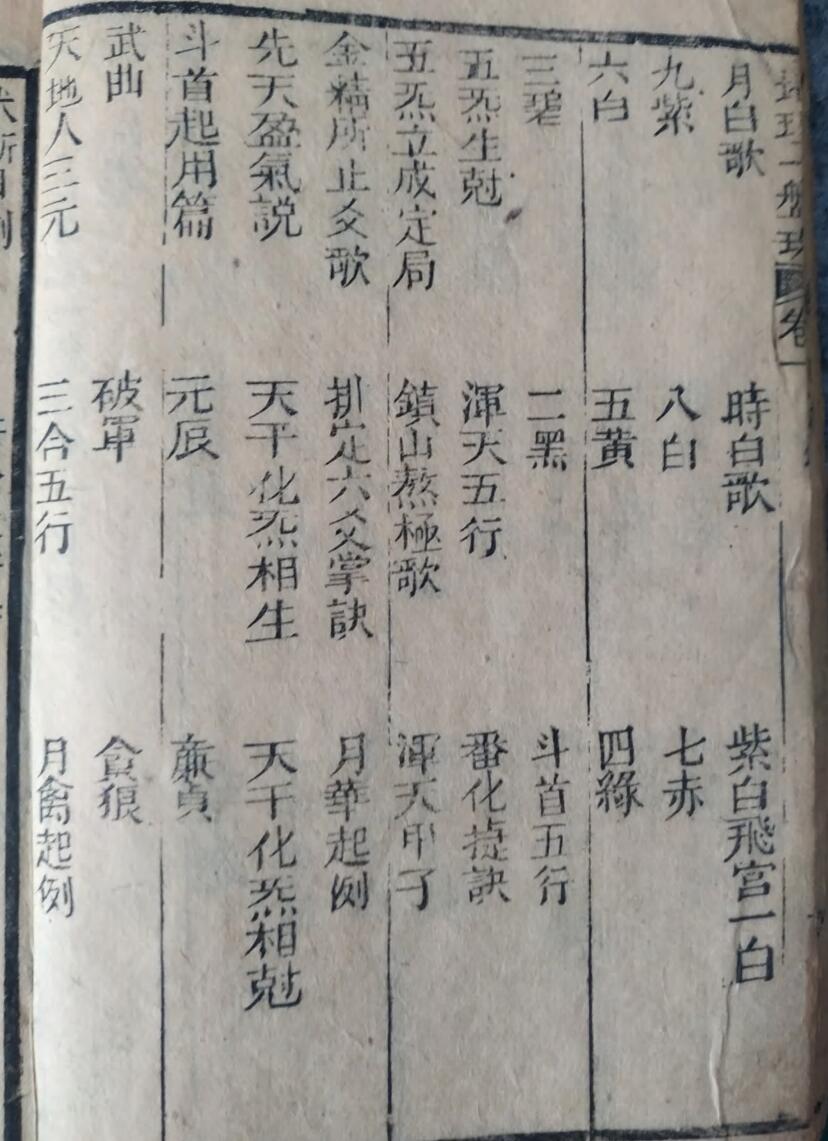 月白歌 時白歌 紫白飛宮一白
九紫 八白 七赤
六白 五黃 四綠
三碧 二黑 斗首五行
五炁生尅 渾天五行 番化捷訣
五炁立成定局 鎮山熬極歌 渾天甲子
金精所止爻歌 排定六爻掌訣 月華起例
先天盈氣説 天干化炁相生 天干化炁相尅
斗首起用篇 元辰 廉貞
武曲 破軍 貪狼
天地人三元 三合五行 月禽起例